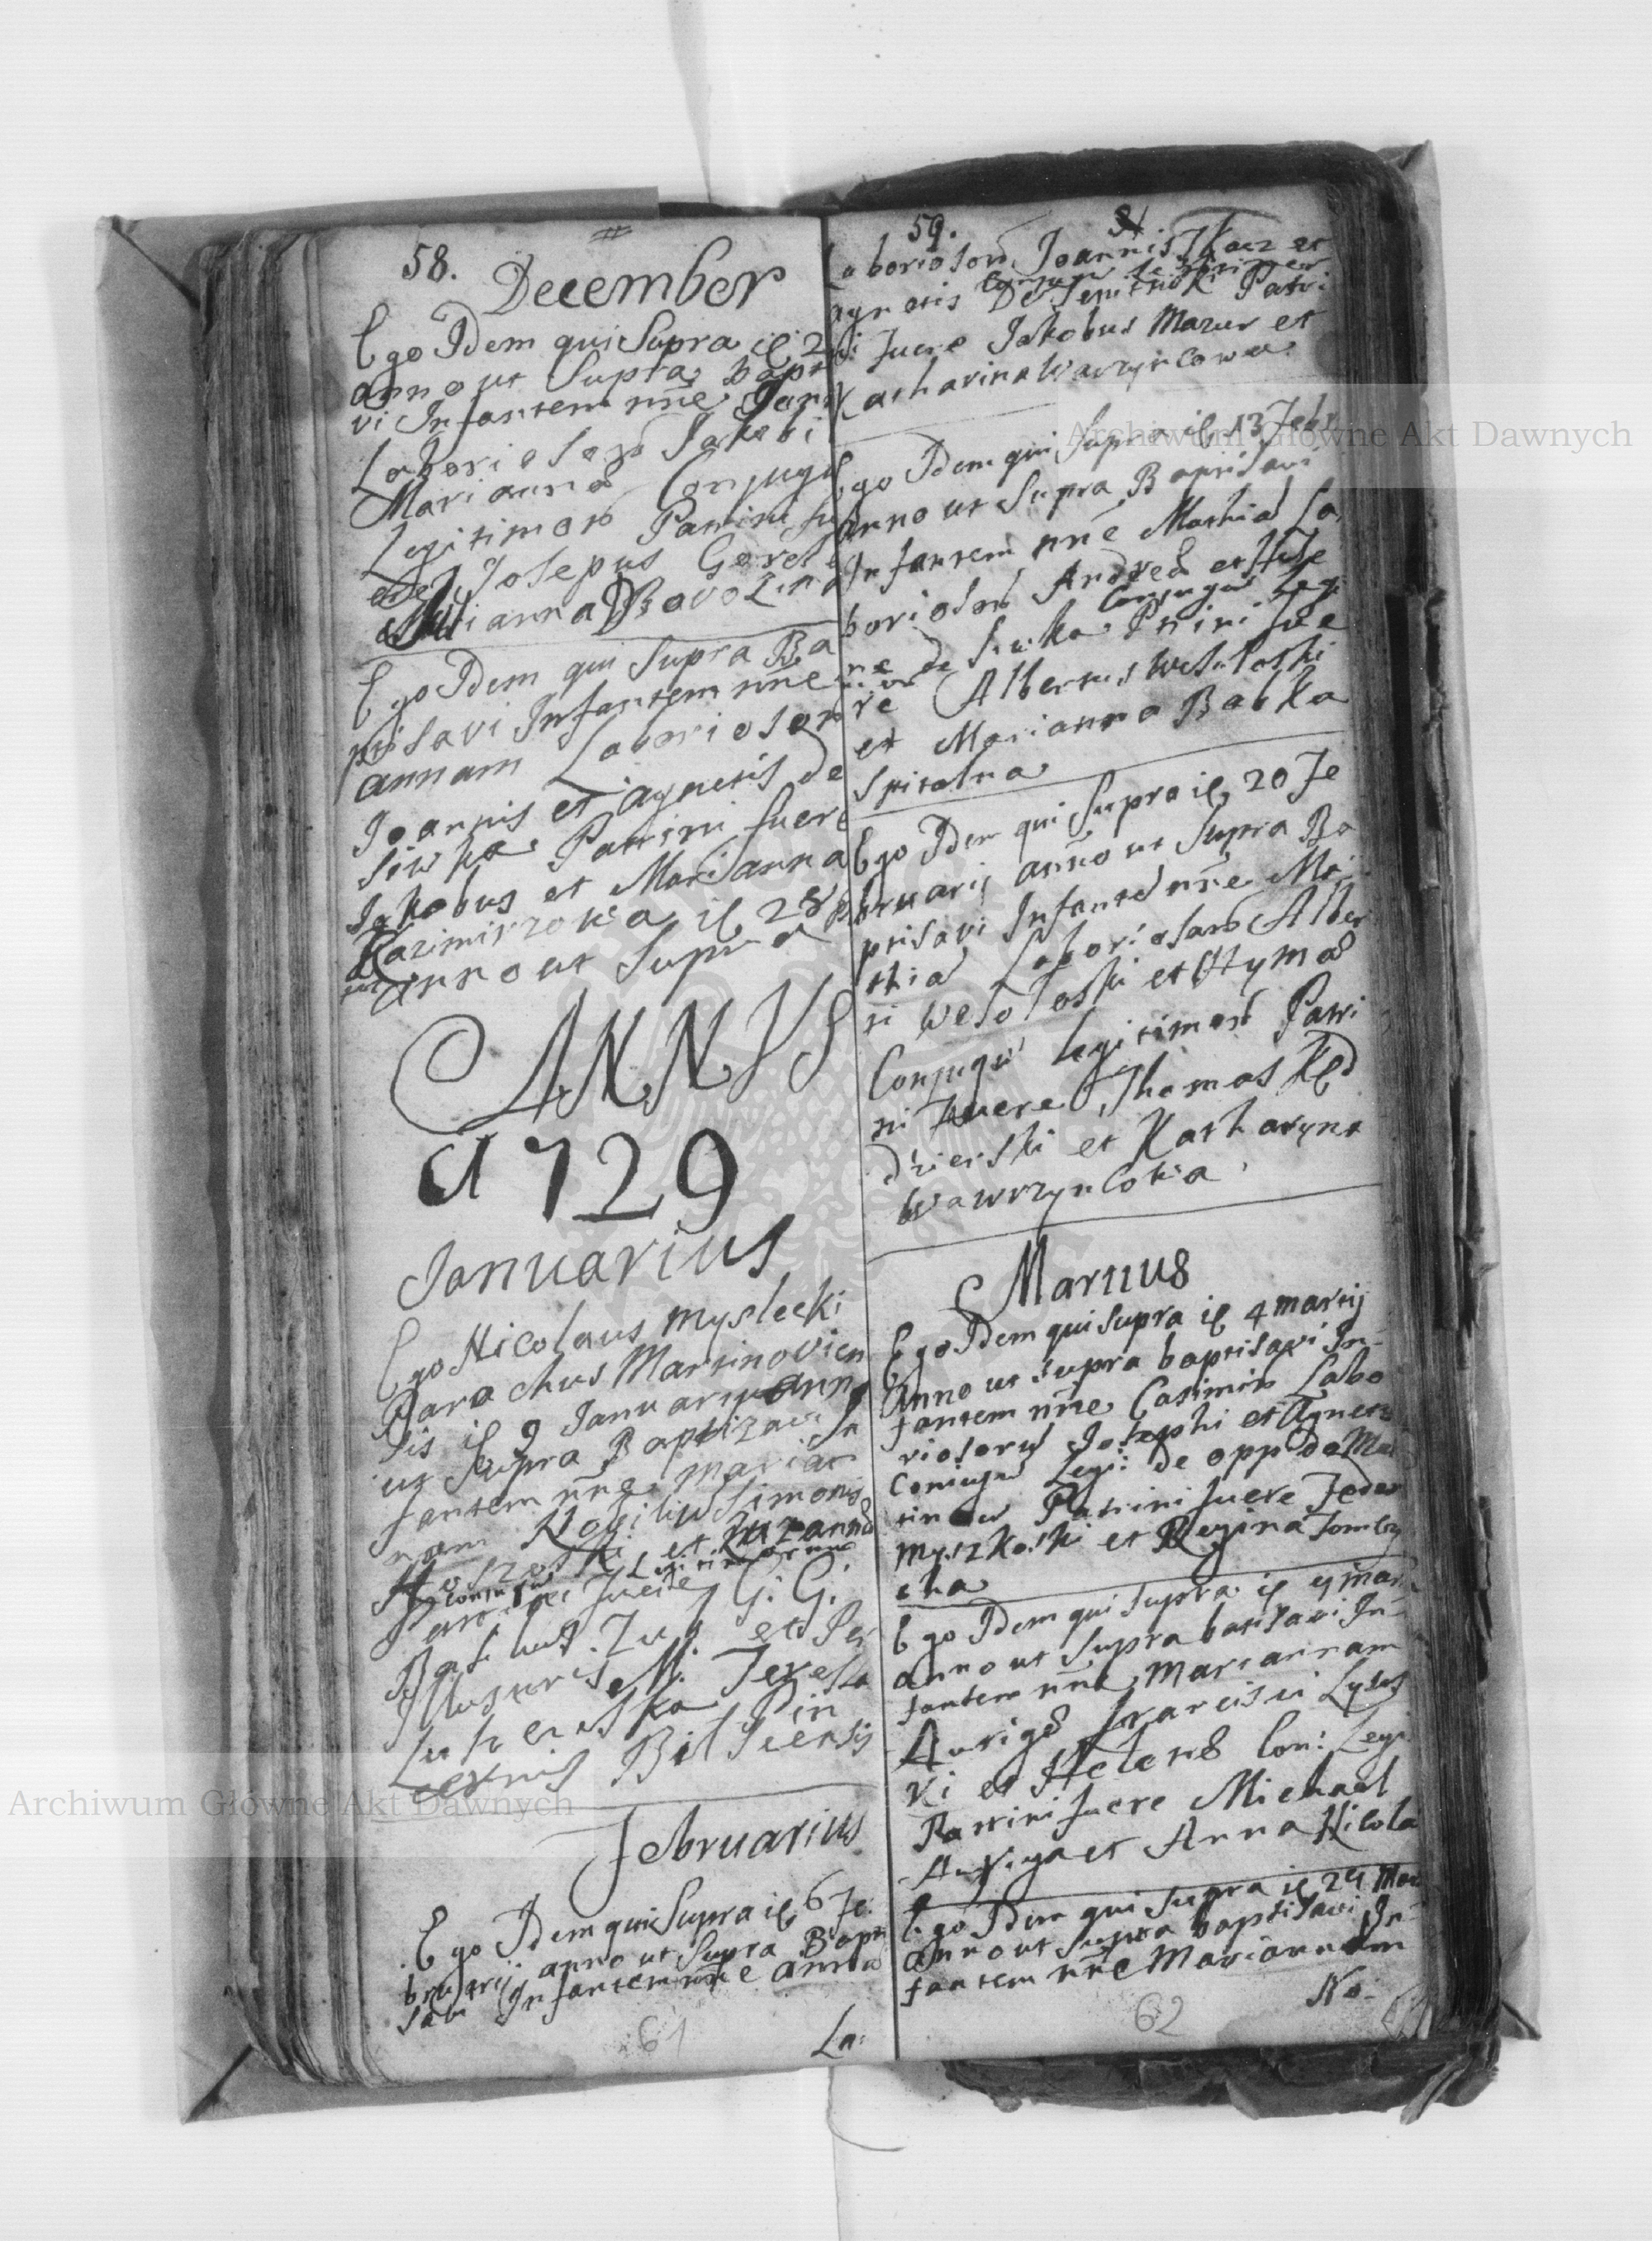 58.
December
Ego Idem qui Supra ip 2
anno ut Supra Bapt
vi Infantem nne
Laboriosor Jakobi
Marianna Conjugu
Legitimor Patrini
Josepus
Marianna
Ego Idem qui Supra Ba
ptisavi Infantem nne
annam Laboriosor
Joannis et agnetis de
Siwka Patrini fuere
Jakobus et Marianna
Kazimirzowa ip 28
anno ut Supra
ANNVS
1729
Januarius
Ego Nicolaus Myslecki
Parochus Martinovien
sis ip 9 Januarij ann
ut Supra Baptizavi In
fantem nne Marian
nam Nobiliu Simonis
et Zuzanna
Conjugu Legitimorum
Patrini fuere G: G:
et
Illustris M: Teresa
Pin
cernis Bilscensis
Februarius
Ego Idem qui Supra ip 6 Fe
bruarij anno ut Supra Bapti
savi Infantem nne anna
La:
61
59.
Laboriosor Joannis Tkacz et
agnetis Conjugu Legitimor
De Patri
ni fuere Jakobus Mazur et
Katharina Wawrzyncowa
Ego Idem qui Supra ip 13 Febr
anno ut Supra Baptisavi
Infantem nne Mathia La
boriosor Andrea et
Conjugu Legi
de Siwka Patrini fue
re Albertus Wesoloski
et Marianna Babka
Spitalna
Ego Idem qui Supra ip 20 Fe
bruarij anno ut Supra Ba
ptisavi Infante nne Ma
thia Laboriosor Alber
ti Wesoloski et
Conjugu Legitimor Patri
ni fuere Thomas Kęd
zierski et Katharyna
Wawrzyncowa
Martius
Ego Idem qui Supra ip 4 martij
Anno ut supra baptisavi In-
fantem nne Casimir Labo
riosoru Josephi et Agnetis
Coniugu Legi: de opp: de Mar
tinow Patrini fuere Feder
Myszkoski et Regina
cka
Ego Idem qui supra ip mar
anno ut Supra batisavi In-
fantem nne Mariannam
Auriga Francisci
et Helena Con: Legi
Patrini fuere Michael
Auriga et Anna Nicola
Ego Idem qui Supra ip 24 Mar
anno ut Supra baptisavi In-
fantem nne Mariannam
No-
62
Archiwum Główne Akt Dawnych
Archiwum Główne Akt Dawnych